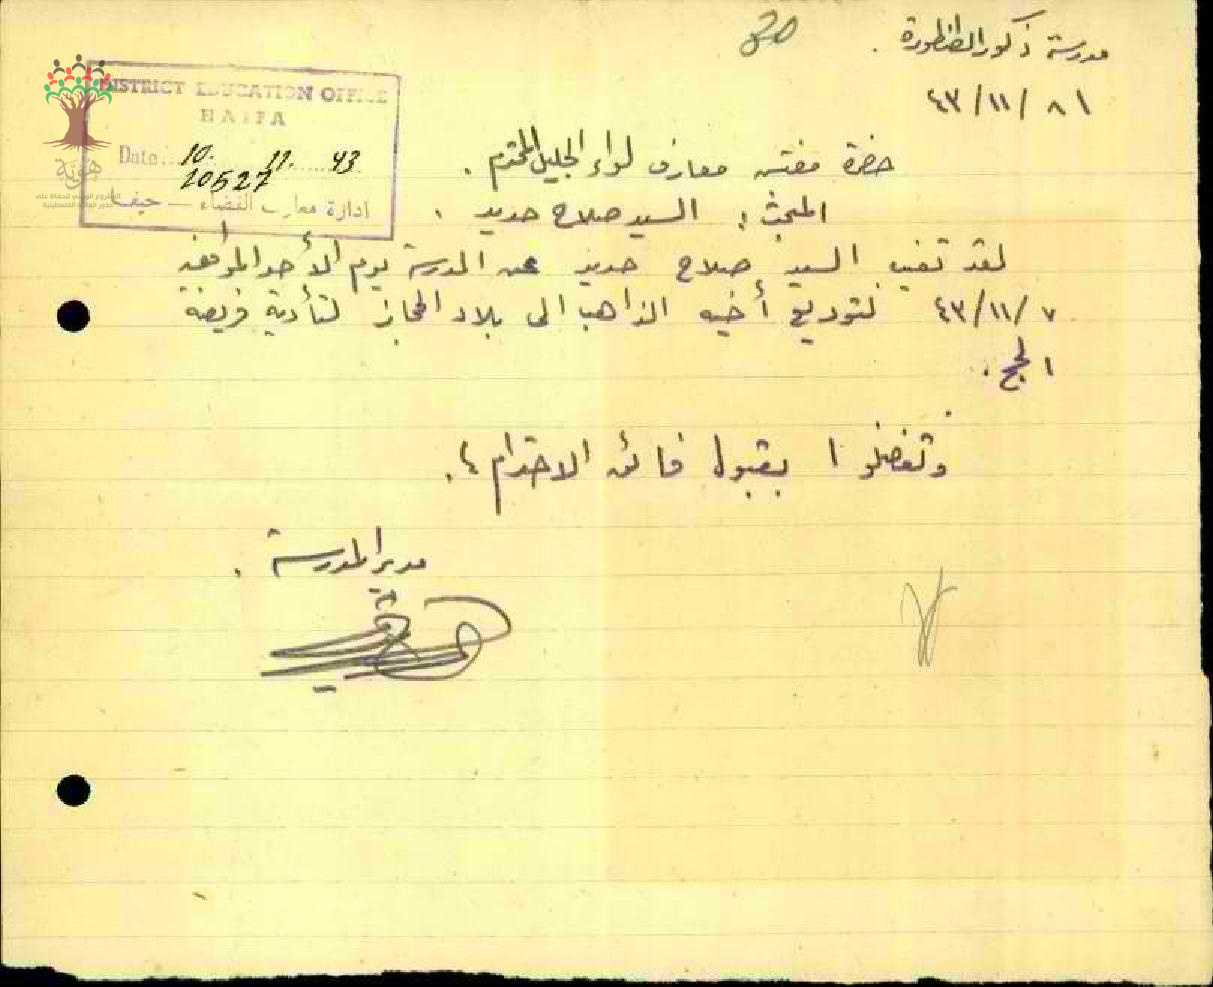 30
مدرسة ذكور الطنطورة .
٨ / ١١ / ٤٣
DISTRICT EDUCATION OFFICE
HAIFA
Date 10. 11. 43
10527
ادارة معارف القضاء — حيفا
هوية
حضرة مفتش معارف لواء الجليل المحترم .
المبحث : السيد صلاح حديد .
لقد تغيب السيد صلاح حديد عن المدرسة يوم الأحد الموافق
٧ / ١١ / ٤٣ لتوديع أخيه الذاهب الى بلاد الحجاز لتأدية فريضة
الحج .
وتفضلوا بقبول فائق الاحترام ؛.
مدير المدرسة .